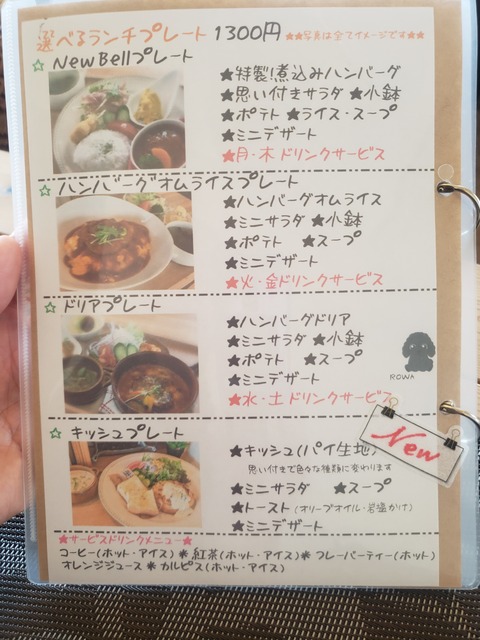 選べるランチプレート 1300円 ★★写真は全てイメージです★★
☆ New Bellプレート
★特製!煮込みハンバーグ
★思い付きサラダ ★小鉢
★ポテト ★ライス・スープ
★ミニデザート
★月・木 ドリンクサービス
☆ ハンバーグオムライスプレート
★ハンバーグオムライス
★ミニサラダ ★小鉢
★ポテト ★スープ
★ミニデザート
★火・金ドリンクサービス
☆ ドリアプレート
★ハンバーグドリア
★ミニサラダ ★小鉢
★ポテト ★スープ
★ミニデザート
★水・土ドリンクサービス
ROWA
☆ キッシュプレート
New
★キッシュ(パイ生地)
思い付きで色々な種類に変わります
★ミニサラダ ★スープ
★トースト(オリーブオイル・岩塩かけ)
★ミニデザート
★サービスドリンクメニュー★
コーヒー(ホット・アイス) ✱ 紅茶(ホット・アイス) ✱ フレーバーティー(ホット)
オレンジジュース ✱ カルピス(ホット・アイス)